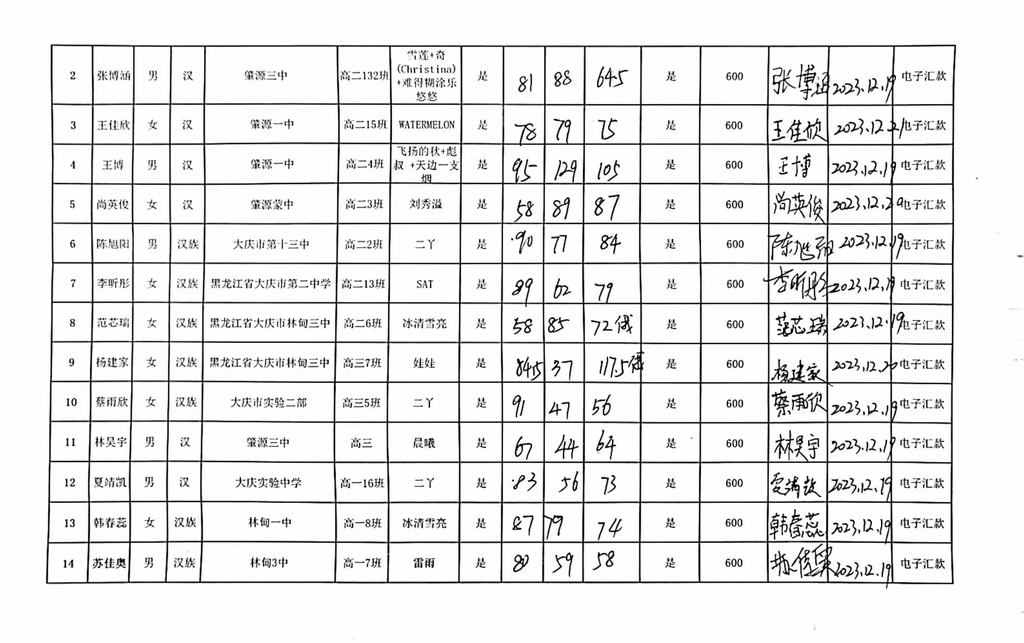 2 张博涵 男 汉 肇源三中 高二132班 雪莲+奇(Christina)+难得糊涂乐悠悠 是 81 88 645 是 600 张博涵 2023.12.19 电子汇款
3 王佳欣 女 汉 肇源一中 高二15班 WATERMELON 是 78 79 75 是 600 王佳欣 2023.12.21 电子汇款
4 王博 男 汉 肇源一中 高二4班 飞扬的秋+彪叔 +天边一支烟 是 95 129 105 是 600 王博 2023.12.19 电子汇款
5 尚英俊 女 汉 肇源蒙中 高二3班 刘秀溢 是 58 89 87 是 600 尚英俊 2023.12.20 电子汇款
6 陈旭阳 男 汉族 大庆市第十三中 高二2班 二丫 是 90 77 84 是 600 陈旭阳 2023.12.19 电子汇款
7 李昕彤 女 汉族 黑龙江省大庆市第二中学 高二13班 SAT 是 89 62 79 是 600 李昕彤 2023.12.19 电子汇款
8 范芯瑞 女 汉族 黑龙江省大庆市林甸三中 高二6班 冰清雪亮 是 58 85 72俄 是 600 范芯瑞 2023.12.19 电子汇款
9 杨建家 女 汉族 黑龙江省大庆市林甸三中 高三7班 娃娃 是 84.5 37 117.5俄 是 600 杨建家 2023.12.20 电子汇款
10 蔡雨欣 女 汉族 大庆市实验二部 高三5班 二丫 是 91 47 56 是 600 蔡雨欣 2023.12.19 电子汇款
11 林昊宇 男 汉 肇源三中 高三 晨曦 是 67 44 64 是 600 林昊宇 2023.12.19 电子汇款
12 夏靖凯 男 汉 大庆实验中学 高一16班 二丫 是 83 56 73 是 600 2023.12.19 电子汇款
13 韩春蕊 女 汉族 林甸一中 高一8班 冰清雪亮 是 87 79 74 是 600 韩春蕊 2023.12.19 电子汇款
14 苏佳奥 男 汉族 林甸3中 高一7班 雷雨 是 80 59 58 是 600 苏佳奥 2023.12.19 电子汇款